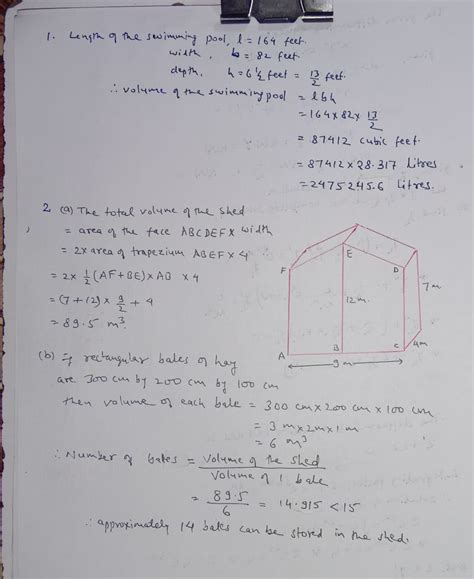 1. Length of the swimming pool, l = 164 feet.
width, b = 82 feet
depth, h = 6 1/2 feet = 13/2 feet.
∴ volume of the swimming pool = lbh
= 164 x 82 x 13/2
= 87412 cubic feet.
= 87412 x 28.317 Litres
= 2475245.6 Litres.
2. (a) The total volume of the shed
= area of the face ABCDEF x width
= 2x area of trapezium ABEF x 4
= 2x 1/2 (AF+BE) x AB x 4
= (7+12) x 9/2 + 4
= 89.5 m³
F
E
D
12 m.
7 m
A
B
C
4m
9 m
(b) If rectangular bales of hay
are 300 cm by 200 cm by 100 cm
then volume of each bale = 300 cm x 200 cm x 100 cm
= 3 m x 2m x 1 m
= 6 m³
∴ Number of bales = Volume of the shed / Volume of 1 bale
= 89.5/6 = 14.915 < 15
∴ approximately 14 bales can be stored in the shed.